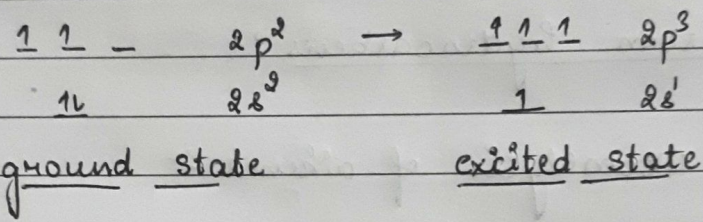 1 1 _ 2p² → 1 1 1 2p³
1l 2s² 1 2s¹
ground state excited state